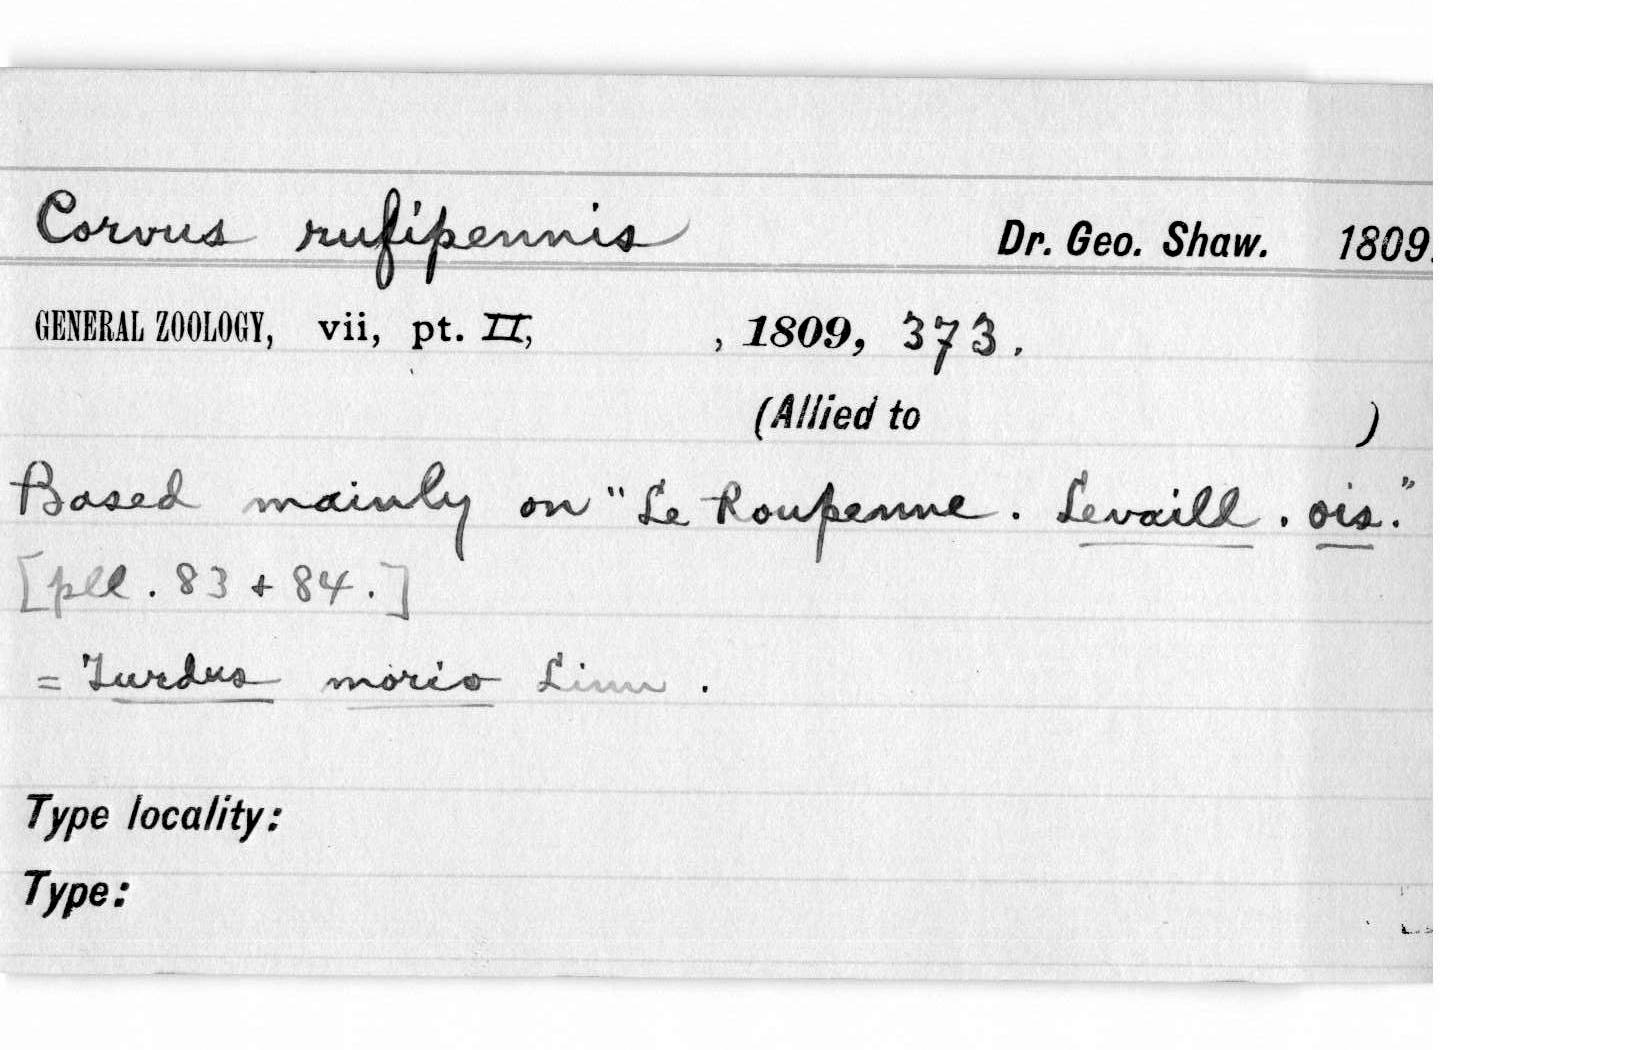 Corvus rufipennis Dr. Geo. Shaw. 1809.
GENERAL ZOOLOGY, vii, pt. II, , 1809, 373.
(Allied to )
Based mainly on "Le Roupenne. Levaill. ois."
[pll. 83 + 84.]
= Turdus morio Linn.
Type locality:
Type: